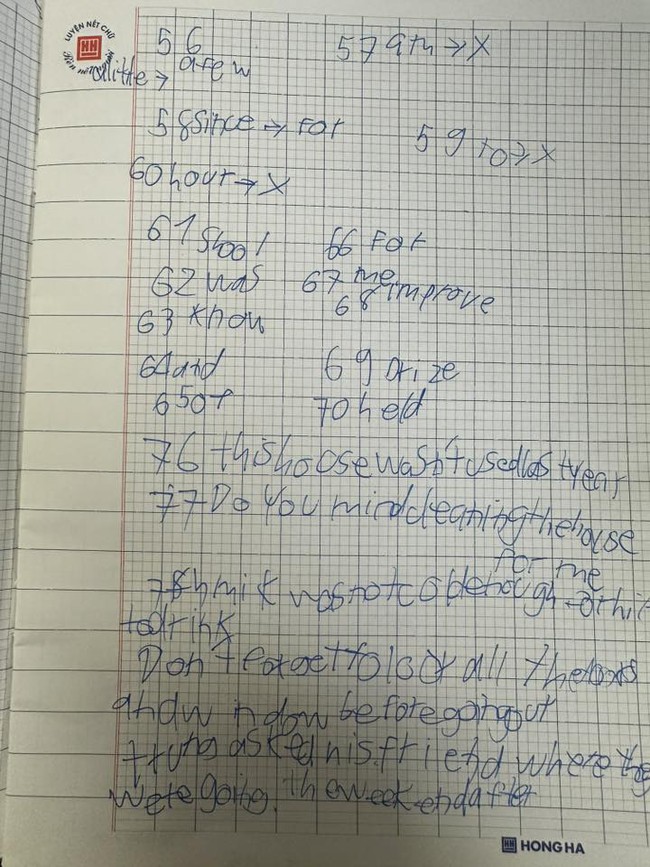 LUYỆN NÉT CHỮ
56
57 9th → X
a little → a few
58 since → for
59 to → X
60 hour → X
61 Shool
66 For
62 was
67 me
68 improve
63 know
64 and
69 prize
65 of
70 held
76 this hoose wasn't used last year
77 Do you mind cleaning the house
for me
78 was not cold enough
to drink
Don't forget to lock all the
and window before going out
trung asked his friend where they
were going. the weekend after
HONG HA